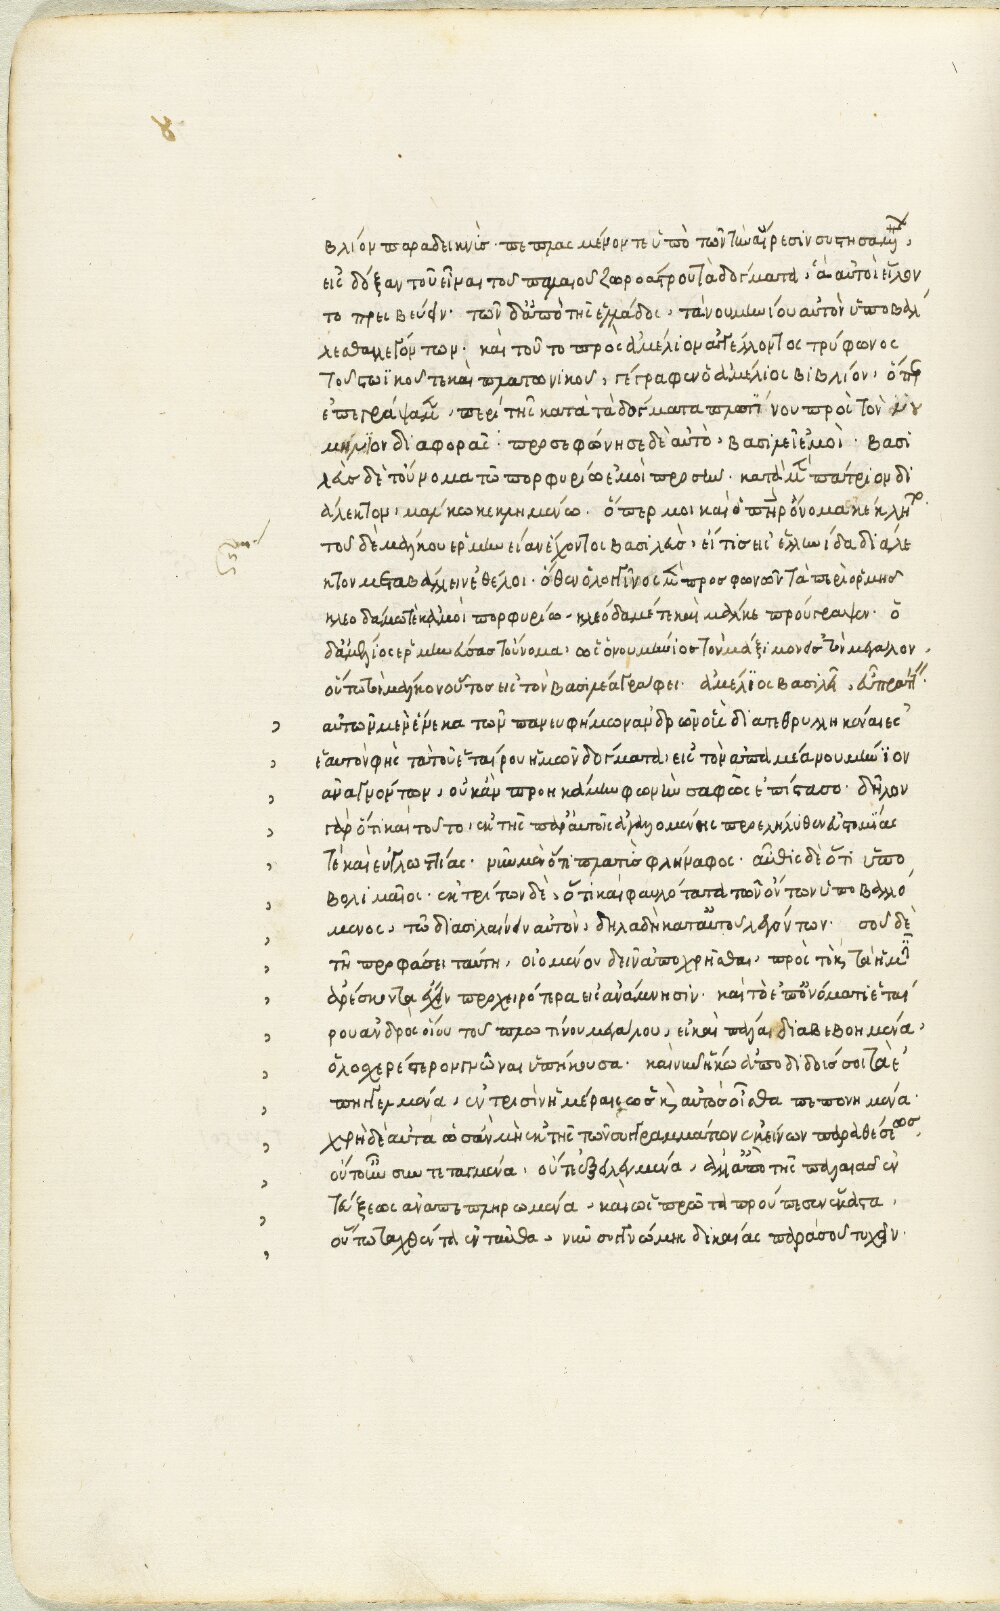 βλίον παραδεικνὺς πεπλασμένον τε ὑπὸ τῶν τὴν αἵρεσιν συστησαμένων,
εἰς δόξαν τοῦ εἶναι τοῦ παλαιοῦ ζωροάστρου τὰ δόγματα, ἃ αὐτοὶ εἵλοντο
το πρεσβεύειν. τῶν δ' ἀπὸ τῆς ἑλλάδος, τὰ νουμηνίου αὐτὸν ὑποβάλ
λεσθαι λεγόντων· καὶ τοῦτο πρὸς ἀμέλιον ἀγγέλλοντος τρύφωνος
τοῦ στωϊκοῦ τε καὶ πλατωνικοῦ, γέγραφεν ὁ ἀμέλιος βιβλίον, ὅπερ
ἐπεγράψαμεν, περὶ τῆς κατὰ τὰ δόγματα πλωτίνου πρὸς τὸν νου
μήνιον διαφορᾶς· προσεφώνησε δὲ αὐτὸ, βασιλεῖ ἐμοί· βασι
λεὺς δὲ τοὔνομα τῷ πορφυρίῳ ἐμοὶ προσῆν· κατὰ μὲν πάτριον δι
άλεκτον, μάλκῳ κεκλημένῳ· ὅπερ μοι καὶ ὁ πατὴρ ὄνομα κέκλητο.
τοῦ δὲ μάλκου ἑρμηνείαν ἔχοντος βασιλεύς, εἴ τις εἰς ἑλληνίδα διάλε
κτον μεταβάλλειν ἐθέλοι· ὅθεν ὁ λογγῖνος μὲν προσφωνῶν τὰ περὶ ὁρμῆς
κλεοδάμῳ τε κἀμοὶ πορφυρίῳ, κλεόδαμέ τε καὶ μάλκε προύγραψεν· ὁ
δ' ἀμέλιος ἑρμηνεύσας τοὔνομα, ὡς ὁ νουμήνιος τὸν μάξιμον εἰς τὸν μέγαλον,
οὕτω τὸν μάλκον οὗτος εἰς τὸν βασιλέα γράφει· ἀμέλιος βασιλεῖ, εὖ πράττειν.
αὐτῶν μὲν ἕνεκα τῶν πανευφήμων ἀνδρῶν οὓς διατεθρυλληκέναι ἐς
ἑαυτὸν φὴς τὰ τοῦ ἑταίρου ἡμῶν δόγματα, εἰς τὸν ἀπαμέα νουμήνιον
ἀναγόντων, οὐκ ἂν προηκάμην φωνὴν σαφῶς ἐπίστασο· δῆλον
γὰρ ὅτι καὶ τοῦτο, ἐκ τῆς παρ' αὐτοῖς ἀγαλλομένης προελήλυθεν εὐστομίας
τε καὶ εὐγλωττίας· νῦν μὲν ὅτι πλατὺς φλήναφος· αὖθις δὲ ὅτι ὑπο
βολιμαῖος· ἐκ τρίτων δὲ, ὅτι καὶ φαυλότατα τῶν ὄντων ὑποβαλλό
μενος, τῷ διασιλαίνειν αὐτὸν, δηλαδὴ κατ' αὐτοῦ λεγόντων· σοῦ δὲ
τῇ προφάσει ταύτῃ, οἰομένου δεῖν ἀποχρῆσθαι, πρὸς τὸ καὶ τὰ ἡμῖν
ἀρέσκοντα ἔχειν προχειρότερα εἰς ἀνάμνησιν· καὶ τὸ ἐπ' ὀνόματι ἑταί
ρου ἀνδρὸς οἵου τοῦ πλωτίνου μεγάλου, εἰ καὶ πάλαι διαβεβοημένα,
ὁλοσχερέστερον γνῶναι ὑπήκουσα· καὶ νῦν ἥκω ἀποδιδούς σοι τὰ ἐ
πηγγελμένα, ἐν τρισὶν ἡμέραις ὡς καὶ αὐτὸς οἶσθα πεπονημένα·
χρὴ δὲ αὐτὰ ὡσὰν μὴ ἐκ τῆς τῶν συγγραμμάτων ἐκείνων παραθέσεως,
οὔτ' οὖν συντεταγμένα, οὔτ' ἐξειλεγμένα, ἀλλ' ἀπὸ τῆς παλαιᾶς ἐν
τεύξεως ἀναπεπληρωμένα, καὶ ὡς πρῶτα προύπεσεν ἕκαστα,
οὕτω ταχθέντα ἐνταῦθα, νῦν συγγνώμης δικαίας παρὰ σοῦ τυχεῖν·